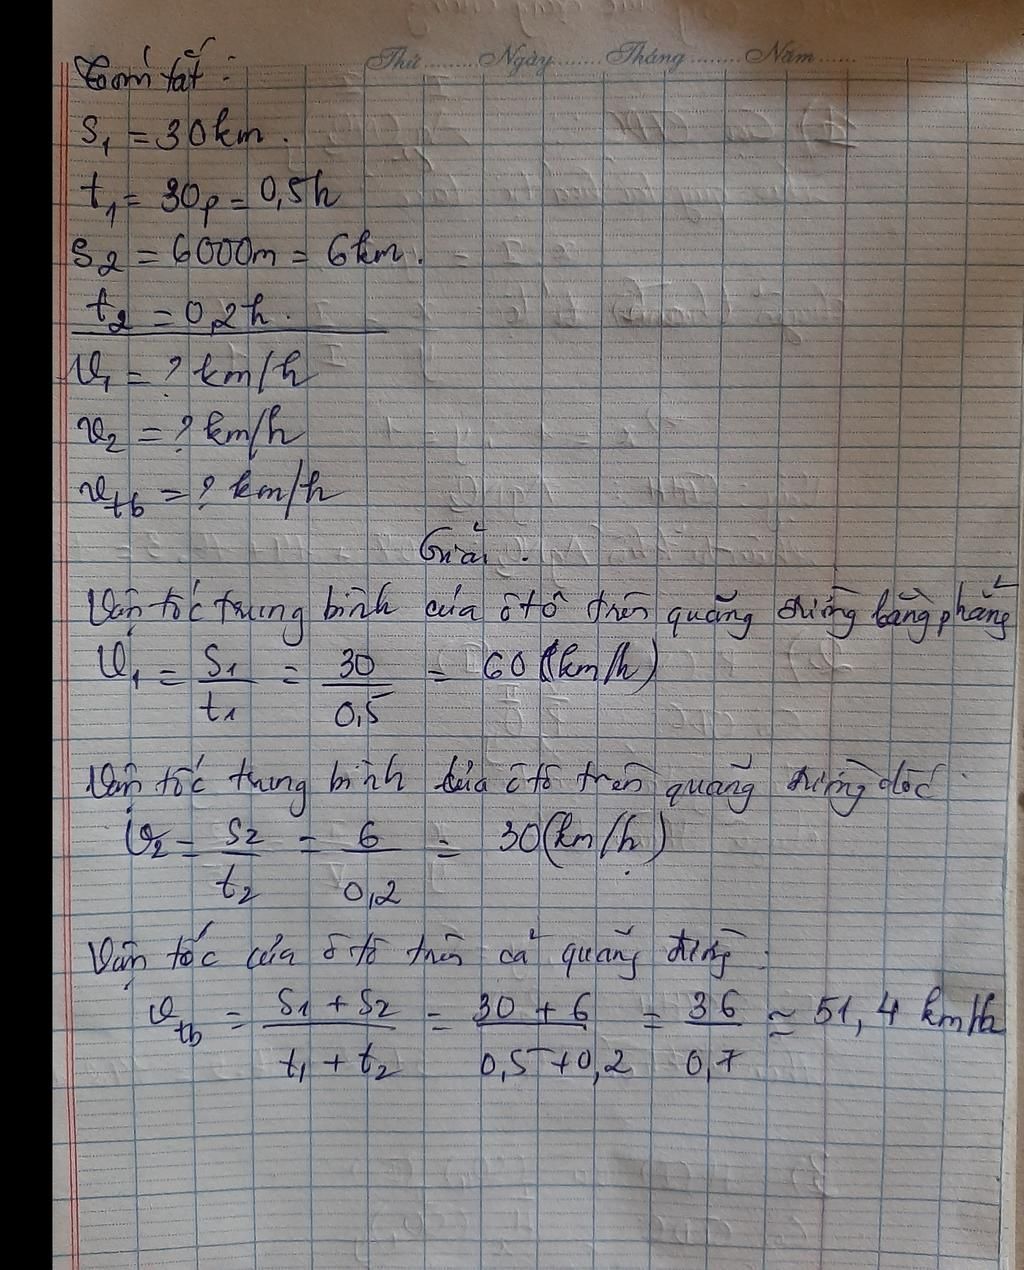 Thứ.........Ngày.........Tháng.........Năm.........
Tóm tắt :
S₁ = 30km.
t₁ = 30p = 0,5h
S₂ = 6000m = 6km.
t₂ = 0,2h.
v₁ = ? km/h
v₂ = ? km/h
v_tb = ? km/h
Giải.
Vận tốc trung bình của ôtô trên quãng đường bằng phẳng
v₁ = S₁/t₁ = 30/0,5 = 60 (km/h)
Vận tốc trung bình của ôtô trên quãng đường dốc.
v₂ = S₂/t₂ = 6/0,2 = 30 (km/h)
Vận tốc của ôtô trên cả quãng đường.
v_tb = S₁ + S₂/t₁ + t₂ = 30 + 6/0,5 + 0,2 = 36/0,7 ≈ 51,4 km/h